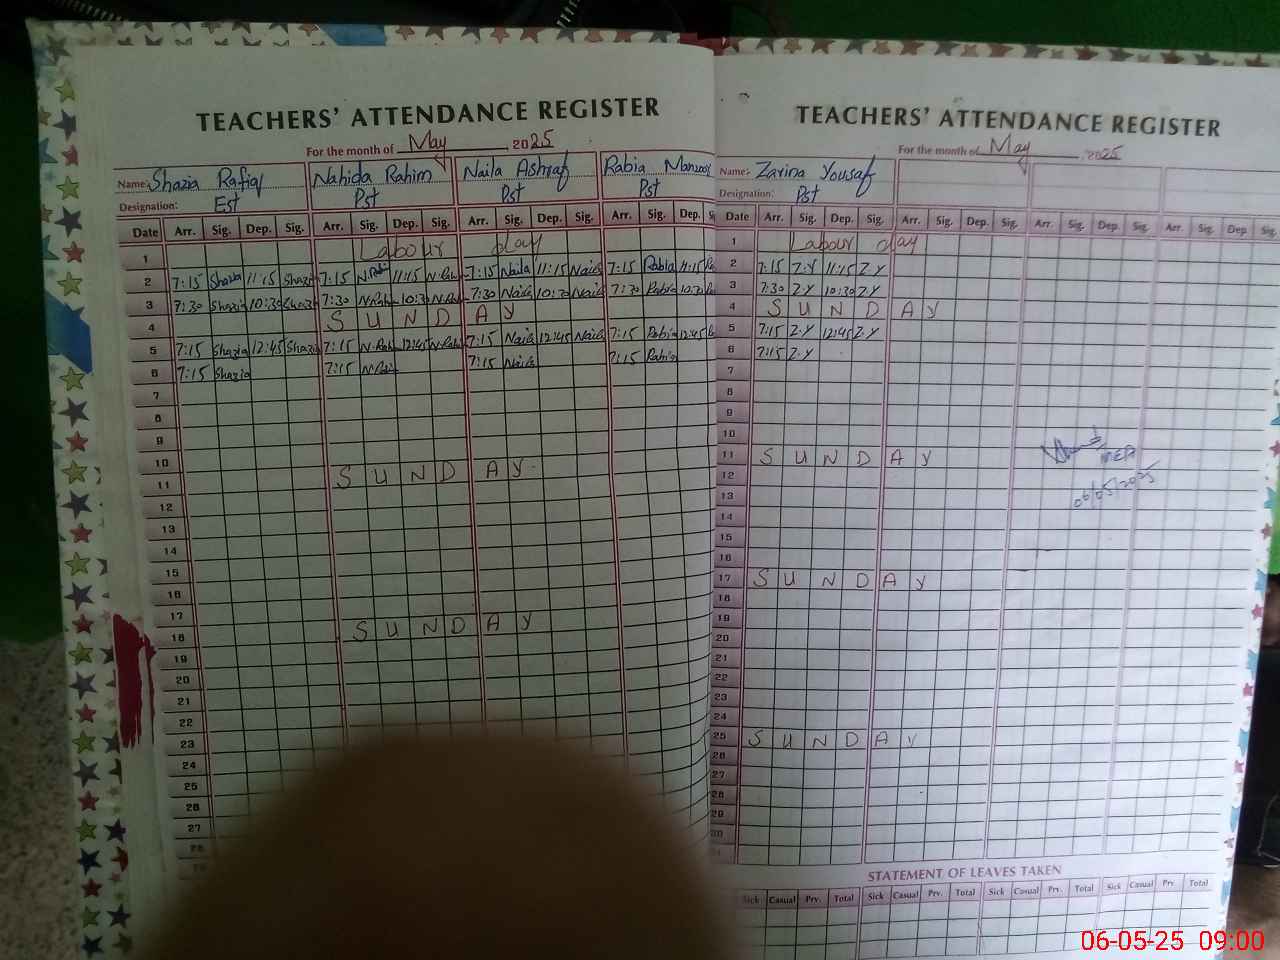 TEACHERS' ATTENDANCE REGISTER
For the month of May 2025
Name: Shazia Rafiq Nahida Rahim Naila Ashraf Rabia Manzoor
Designation: Est Pst Pst Pst
Date Arr. Sig. Dep. Sig. Arr. Sig. Dep. Sig. Arr. Sig. Dep. Sig. Arr. Sig. Dep.
1 Labour day
2 7:15 Shazia 11:15 Shazia 7:15 N.Rahi 11:15 N.Rah 7:15 Naila 11:15 Naila 7:15 Rabia 11:15
3 7:30 Shazia 10:30 Shazia 7:30 N.Rah 10:30 N.Rah 7:30 Naila 10:30 Naila 7:30 Rabia 10:30
4 SUNDAY
5 7:15 Shazia 12:45 Shazia 7:15 N.Rah 12:45 N.Rah 7:15 Naila 12:45 Naila 7:15 Rabia 12:45
6 7:15 Shazia 7:15 N.Rah 7:15 Naila 7:15 Rabia
7
8
9
10
11 SUNDAY
12
13
14
15
16
17
18 SUNDAY
19
20
21
22
23
24
25
26
27
28
TEACHERS' ATTENDANCE REGISTER
For the month of May 2025
Name:- Zarina Yousaf
Designation: Pst
Date Arr. Sig. Dep. Sig. Arr. Sig. Dep. Sig. Arr. Sig. Dep. Sig. Arr. Sig. Dep Sig.
1 Labour day
2 7:15 Z.Y 11:15 Z.Y
3 7:30 Z.Y 10:30 Z.Y
4 SUNDAY
5 7:15 Z.Y 12:45 Z.Y
6 7:15 Z.Y
7
8
9
10
11 SUNDAY
12
13
14
15
16
17 SUNDAY
18
19
20
21
22
23
24
25 SUNDAY
26
27
28
29
30
06/05/2025
STATEMENT OF LEAVES TAKEN
Sick Casual Prv. Total Sick Casual Prv. Total Sick Casual Prv. Total Sick Casual Prv Total
06-05-25 09:00